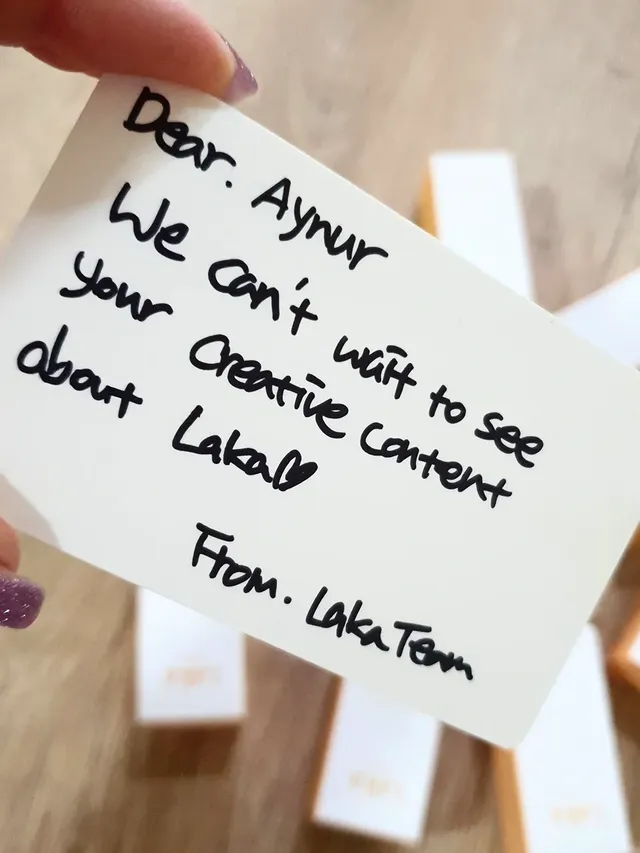 Dear. Aynur
We can't wait to see
your Creative Content
about Laka♡
From. Laka Team